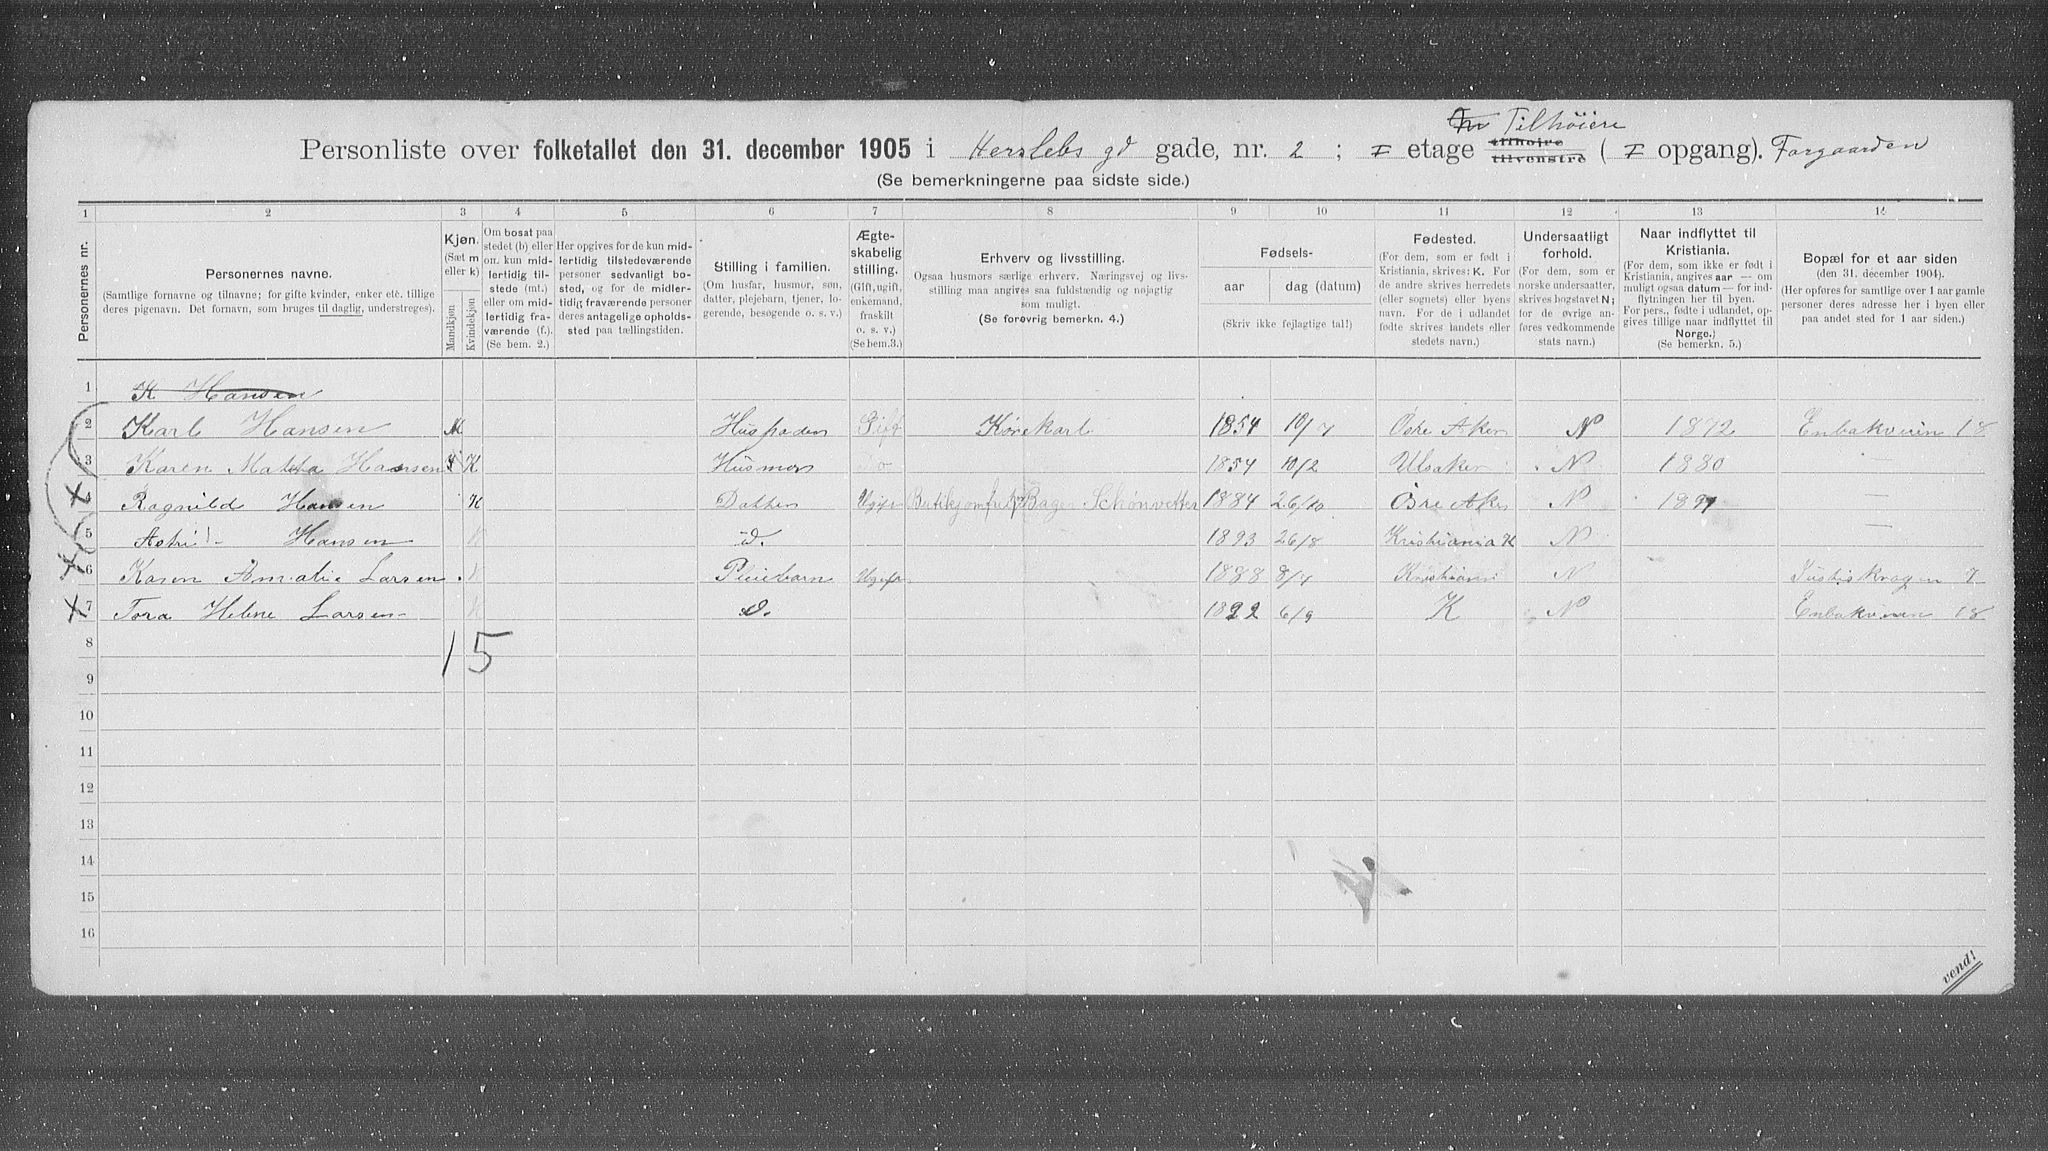 Tilhöiere
Personliste over folketallet den 31. december 1905 i Herslebs gd gade, nr. 2 ; I etage tilhøire tilvenstre ( I opgang). Forgaarden
(Se bemerkningerne paa sidste side.)
1 2 3 4 5 6 7 8 9 10 11 12 13 14
Personernes nr.
Personernes navne.
(Samtlige fornavne og tilnavne; for gifte kvinder, enker etc. tillige
deres pigenavn. Det fornavn, som bruges til daglig, understreges).
Kjøn.
(Sæt m
eller k)
Mandkjøn
Kvindekjøn
Om bosat paa
stedet (b) eller
om kun mid-
lertidig til-
stede (mt.)
eller om mid-
lertidig fra-
værende (f.).
(Se bem. 2.)
Her opgives for de kun mid-
lertidig tilstedeværende
personer sedvanlig bo-
sted, og for de midler-
tidig fraværende personer
deres antagelige opholds-
sted paa tællingstiden.
Stilling i familien.
(Om husfar, husmor, søn,
datter, plejebarn, tjener, lo-
gerende, besøgende o. s. v.)
Ægte-
skabelig
stilling.
(Gift, ugift,
enkemand,
fraskilt
o. s. v.)
(Se bem.3.)
Erhverv og livsstilling.
Ogsaa husmors særlige erhverv. Næringsvej og livs-
stilling maa angives saa fuldstændig og nøjagtig
som muligt.
(Se forøvrig bemerkn. 4.)
Fødsels-
aar dag (datum)
(Skriv ikke fejlagtige tal!)
Fødested.
(For dem, som er født i
Kristiania, skrives: K. For
de andre skrives herredets
(eller sognets) eller byens
navn. For de i udlandet
fødte skrives landets eller
stedets navn.)
Undersaatligt
forhold.
(For dem, som er
norske undersaatter,
skrives bogstavet N;
for de øvrige an-
føres vedkommende
stats navn.)
Naar indflyttet til
Kristiania.
(For dem, som ikke er født i
Kristiania, angives aar — om
muligt ogsaa datum — for ind-
flytningen her til byen.
For pers., fødte i udlandet, op-
gives tillige naar indflyttet til
Norge.)
(Se bemerkn. 5.)
Bopæl for et aar siden
(den 31. december 1904).
(Her opføres for samtlige over 1 aar gamle
personer deres adresse her i byen eller
paa andet sted for 1 aar siden.)
1 K Hansen
2 Karl Hansen M Husfader Gift Kørekarl 1854 10/7 Østre Aker N 1872 Enbakveien 18
3 Karen Hansen K Husmor Do 1854 10/2 Ulsaker N 1880 —
4 Ragnild Hansen K Datter Ugift Schønvetter 1884 26/10 Øsre Aker N 1891 —
5 Astrid Hansen K d. 1893 26/8 Kristiania K N —
6 Karen Amalie Larsen K Pleiebarn Ugift 1888 8/7 Kristiania N 7
7 Tora Helene Larsen K d. 1892 6/9 K N Enbakveien 18
8
15
9
10
11
12
13
14
15
16
vend!